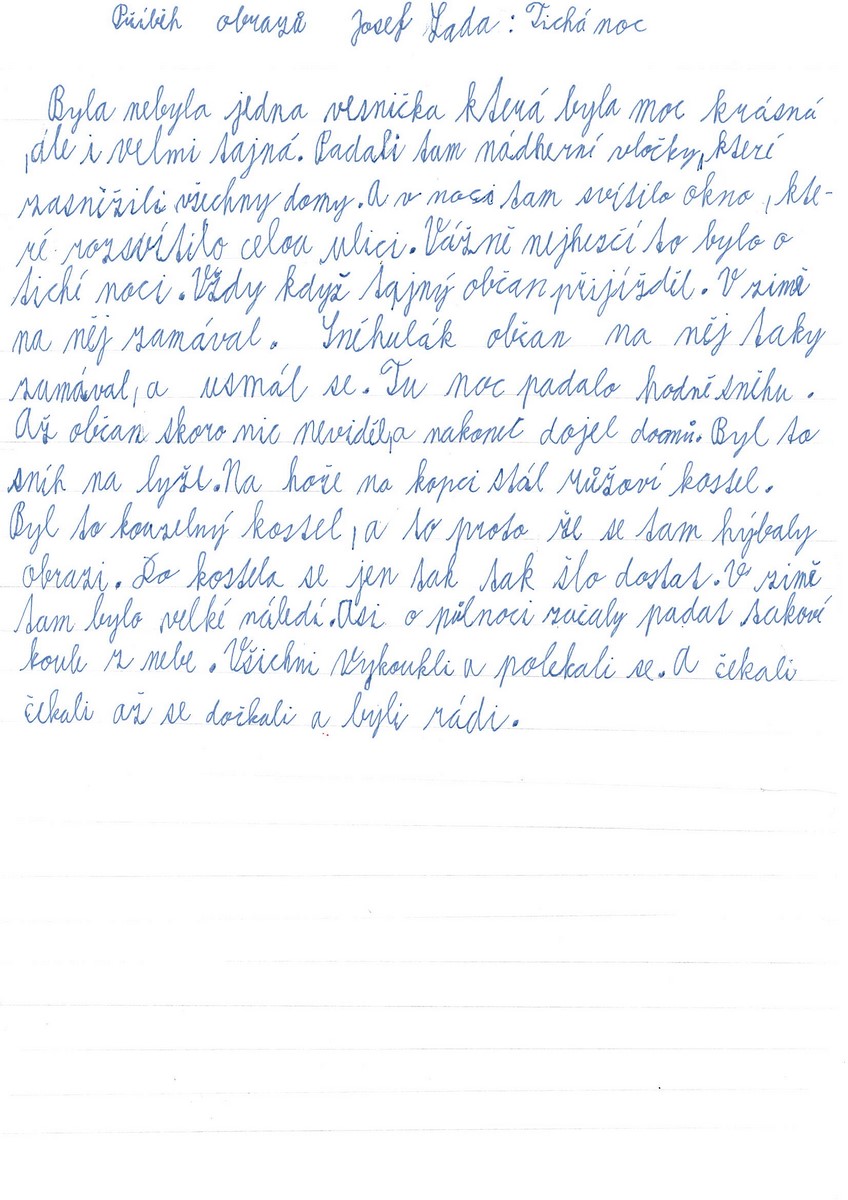 Příběh obrazů Josef Lada: Tichá noc
Byla nebyla jedna vesnička která byla moc krásná
,ale i velmi tajná. Padali tam nádherní vločky, které
zasněžili všechny domy. A v noci tam svítilo okno, kte-
ré rozsvítilo celou ulici. Vážně nejhezčí to bylo o
tiché noci. Vždy když tajný občan přijížděl. V zimě
na něj zamával. Sněhulák občan na něj taky
zamával, a usmál se. Tu noc padalo hodně sněhu.
Až občan skoro nic neviděl, a nakonec dojel domů. Byl to
sníh na lyže. Na hoře na kopci stál růžoví kostel.
Byl to kouzelný kostel, a to proto že se tam hýbaly
obrazi. Do kostela se jen tak tak šlo dostat. V zimě
tam bylo velké náledí. Asi o půlnoci začaly padat takoví
koule z nebe. Všichni vykoukli a polekali se. A čekali
čekali až se dočkali a byli rádi.